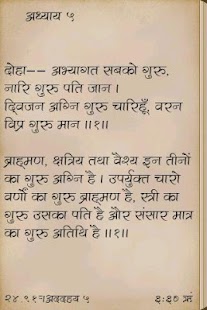 अध्याय ५
दोहा-- अभ्यागत सबको गुरु,
नारि गुरु पति जान ।
द्विजन अग्नि गुरु चारिहूँ, वरन
विप्र गुरु मान ॥१॥
ब्राह्मण, क्षत्रिय तथा वैश्य इन तीनों
का गुरु अग्नि है । उपर्युक्त चारो
वर्णो का गुरु ब्राह्मण है, स्त्री का
गुरु उसका पति है और संसार मात्र
का गुरु अतिथि है ॥१॥